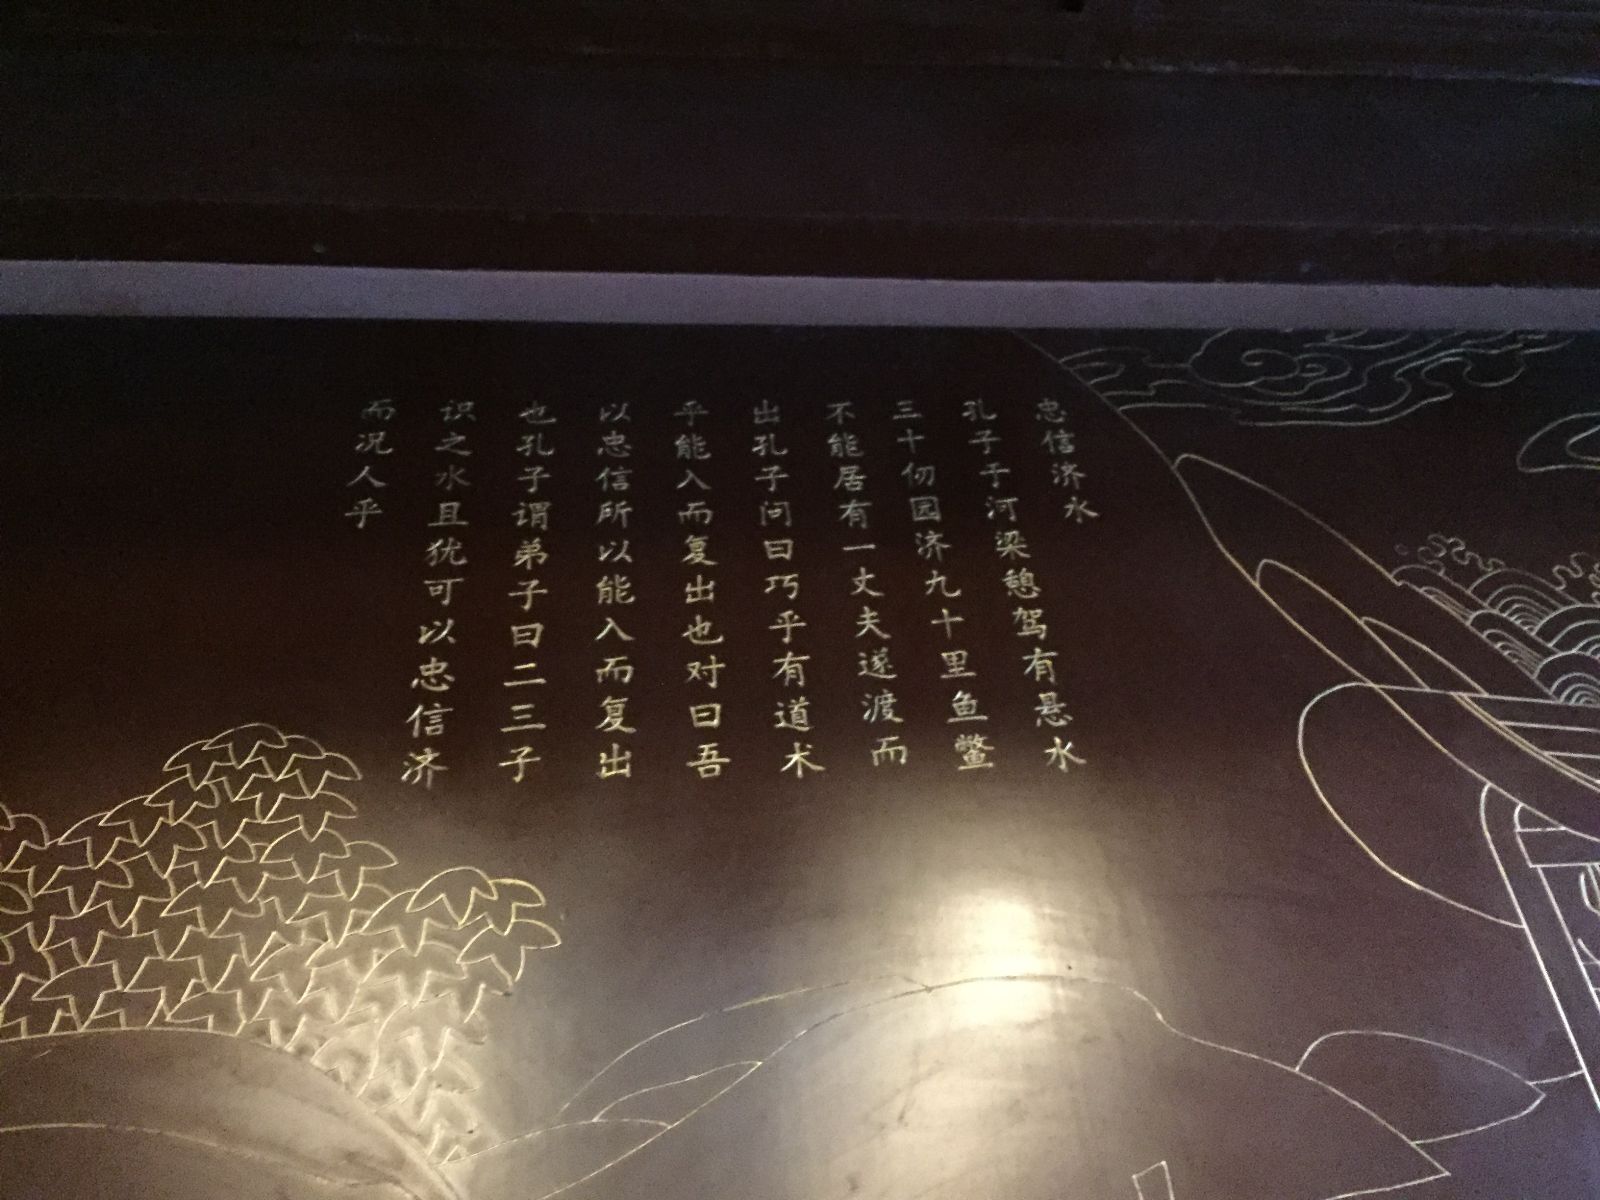 忠信济水
孔子于河梁憩驾有悬水
三十仞园济九十里鱼鳖
不能居有一丈夫遂渡而
出孔子问曰巧乎有道术
乎能入而复出也对曰吾
以忠信所以能入而复出
也孔子谓弟子曰二三子
识之水且犹可以忠信济
而况人乎